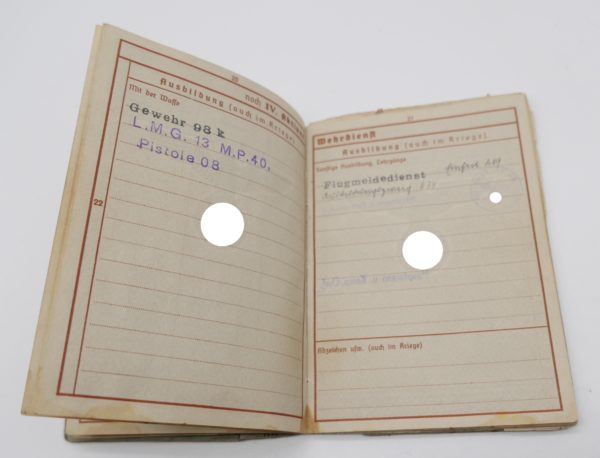 20
noch IV. 
Ausbildung (auch im Kriege)
Mit der Waffe
Gewehr 98 k
L.M.G. 13 M.P.40,
Pistole 08
22
21
Wehrdienst
Ausbildung (auch im Kriege)
Sonstige Ausbildung, Lehrgänge
Flugmeldedienst
Abzeichen usw. (auch im Kriege)